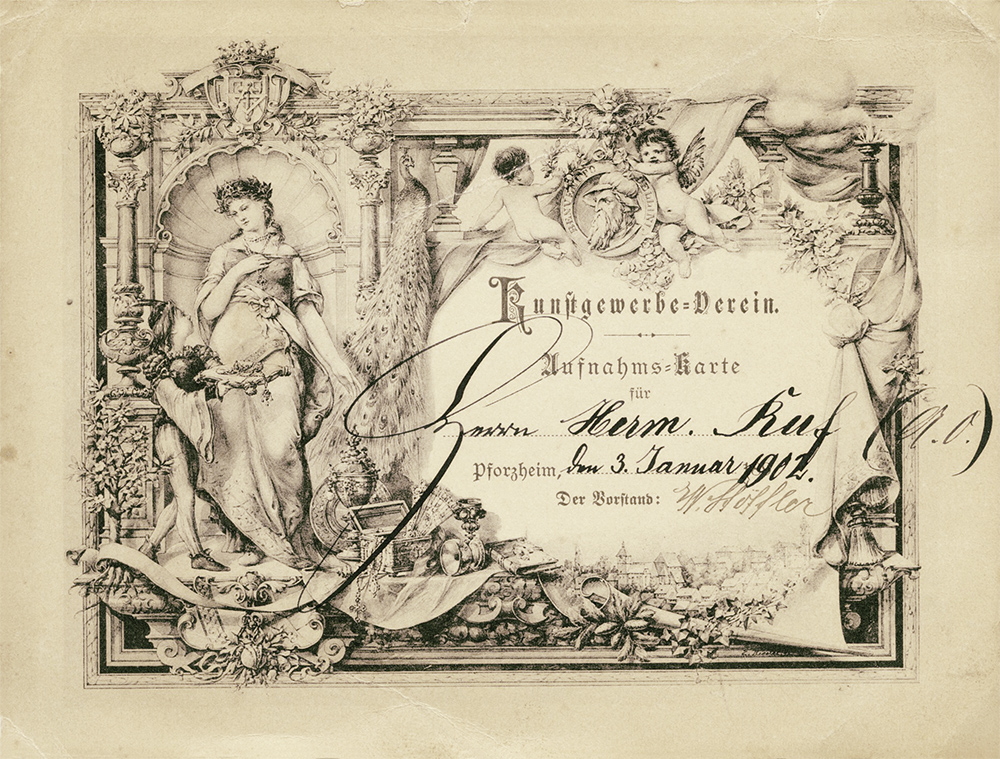 Kunstgewerbe=Verein.
Aufnahms=Karte
für
Herrn Herm. Ruf (A. O.)
Pforzheim, den 3. Januar 1902.
Der Vorstand: W. Stöffler